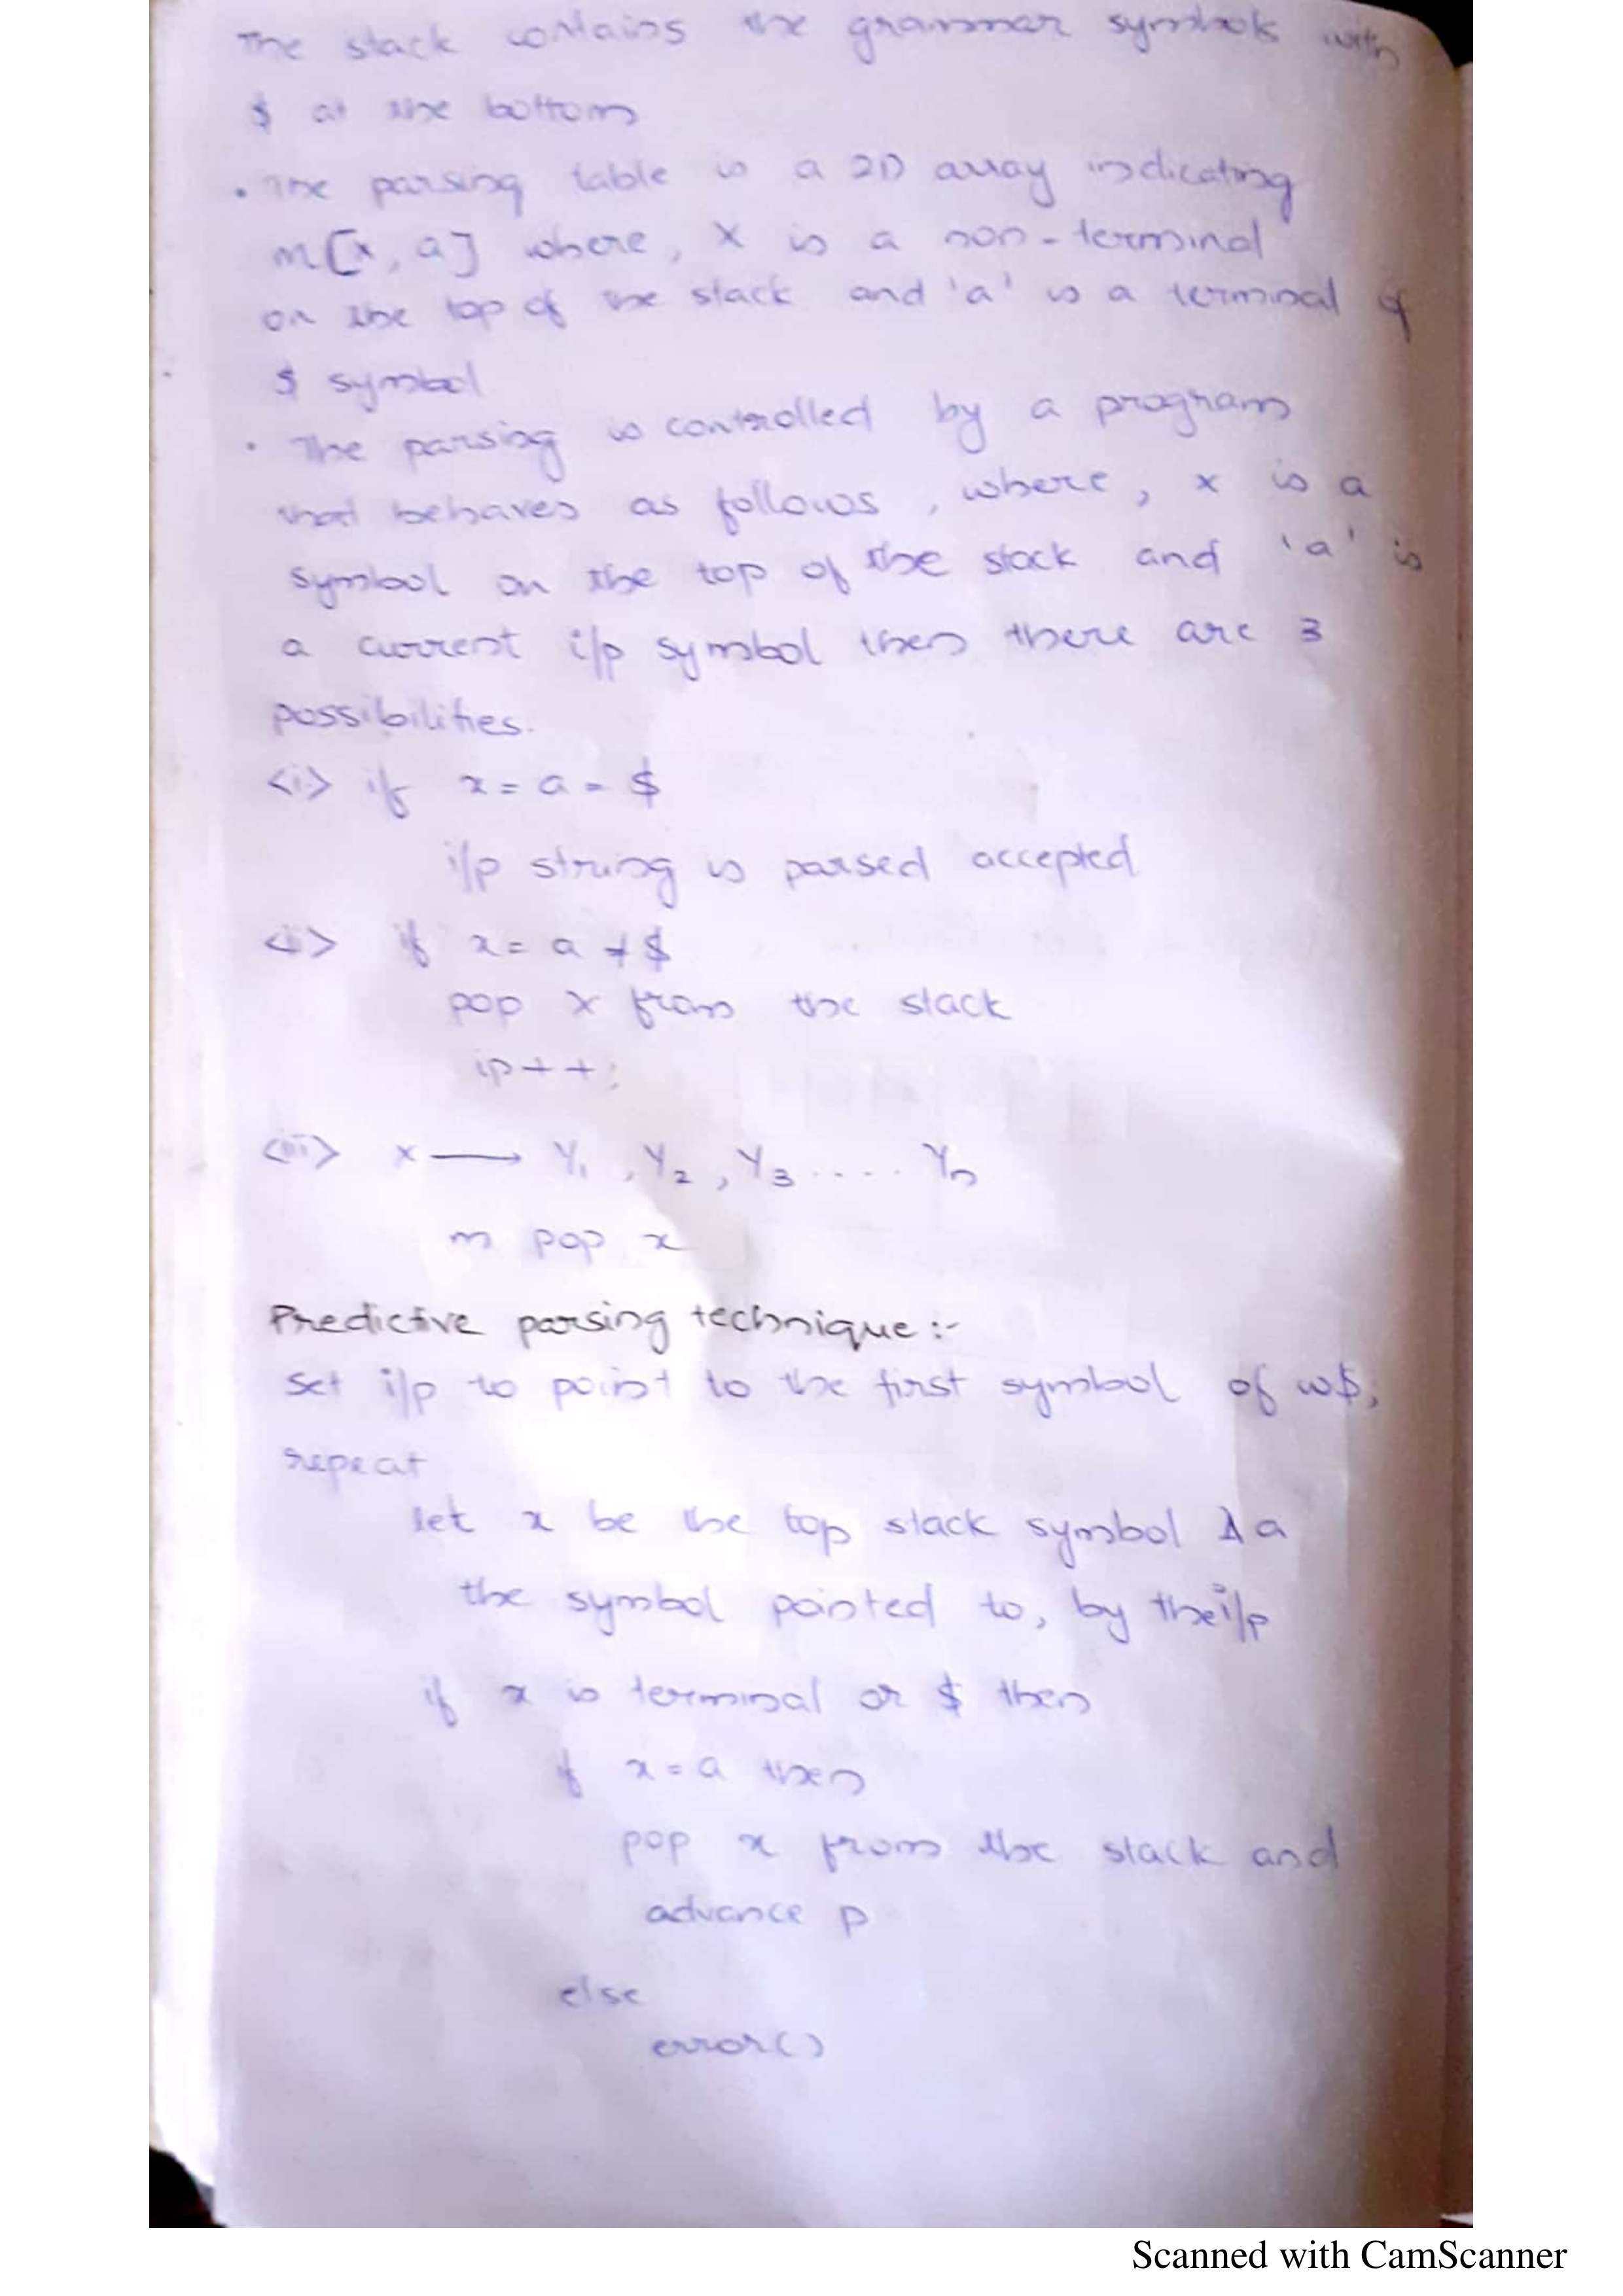 The stack contains the grammar symbols with
$ at the bottom
• The parsing table is a 2D array indicating
m[x, a] where, X is a non-terminal
on the top of the stack and 'a' is a terminal of
$ symbol
• The parsing is controlled by a program
that behaves as follows, where, x is a
symbol on the top of the stack and 'a' is
a current i/p symbol then there are 3
possibilities.
<i> if x = a = $
i/p string is parsed accepted
<ii> if x = a ≠ $
pop x from the stack
ip++;
<iii> x → Y₁, Y₂, Y₃ .... Yₙ
m pop x
Predictive parsing technique :-
Set i/p to point to the first symbol of w$;
repeat
let x be the top stack symbol & a
the symbol pointed to, by the i/p
if x is terminal or $ then
if x = a then
pop x from the stack and
advance p
else
error()
Scanned with CamScanner